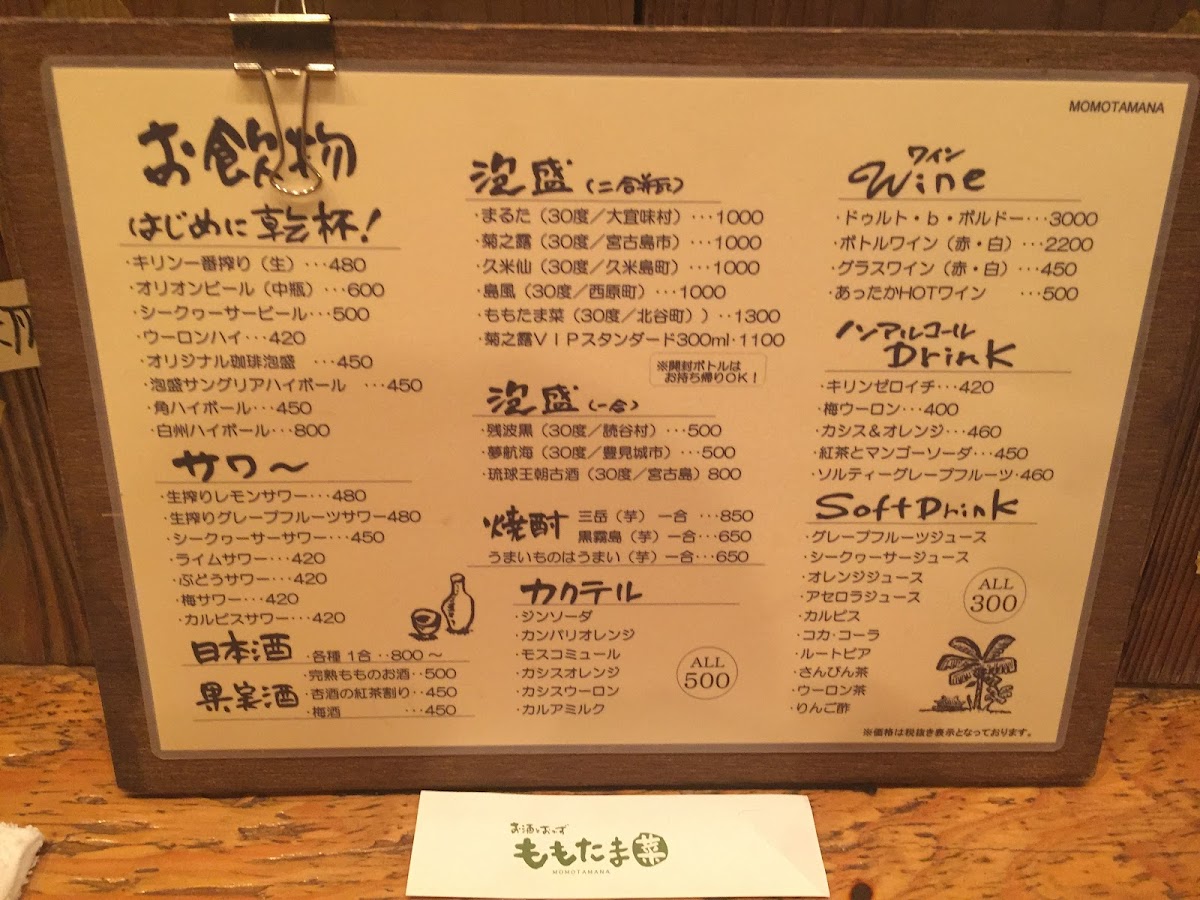 MOMOTAMANA
お飲物
はじめに乾杯!
・キリン一番搾り（生）・・・480
・オリオンビール（中瓶）・・・600
・シークヮーサービール・・・500
・ウーロンハイ・・・420
・オリジナル珈琲泡盛 ・・・450
・泡盛サングリアハイボール ・・・450
・角ハイボール・・・450
・白州ハイボール・・・800
サワ〜
・生搾りレモンサワー・・・480
・生搾りグレープフルーツサワー480
・シークヮーサーサワー・・・450
・ライムサワー・・・420
・ぶどうサワー・・・420
・梅サワー・・・420
・カルピスサワー・・・420
日本酒 ・各種1合・・800〜
果実酒
・完熟もものお酒・・500
・杏酒の紅茶割り・・450
・梅酒 ・・・450
泡盛（二合瓶）
・まるた（30度／大宜味村）・・・1000
・菊之露（30度／宮古島市）・・・1000
・久米仙（30度／久米島町）・・・1000
・島風（30度／西原町）・・・1000
・ももたま菜（30度／北谷町））・・1300
・菊之露ＶＩＰスタンダード300ml・1100
※開封ボトルは
お持ち帰りＯＫ！
泡盛（一合）
・残波黒（30度／読谷村）・・・500
・夢航海（30度／豊見城市）・・・500
・琉球王朝古酒（30度／宮古島）800
焼酎 三岳（芋）一合 ・・・850
黒霧島（芋）一合・・・650
うまいものはうまい（芋）一合・・・650
カクテル
・ジンソーダ
・カンパリオレンジ
・モスコミュール
・カシスオレンジ
・カシスウーロン
・カルアミルク
ALL
500
ワイン
Wine
・ドゥルト・b・ボルドー・・・3000
・ボトルワイン（赤・白）・・・2200
・グラスワイン（赤・白）・・・450
・あったかHOTワイン ・・・500
ノンアルコール
Drink
・キリンゼロイチ・・・420
・梅ウーロン・・・400
・カシス＆オレンジ・・・460
・紅茶とマンゴーソーダ・・・450
・ソルティーグレープフルーツ・460
Soft Drink
・グレープフルーツジュース
・シークヮーサージュース
・オレンジジュース
・アセロラジュース
・カルピス
・コカ・コーラ
・ルートビア
・さんぴん茶
・ウーロン茶
・りんご酢
ALL
300
※価格は税抜き表示となっております。
ももたま菜
MOMOTAMANA